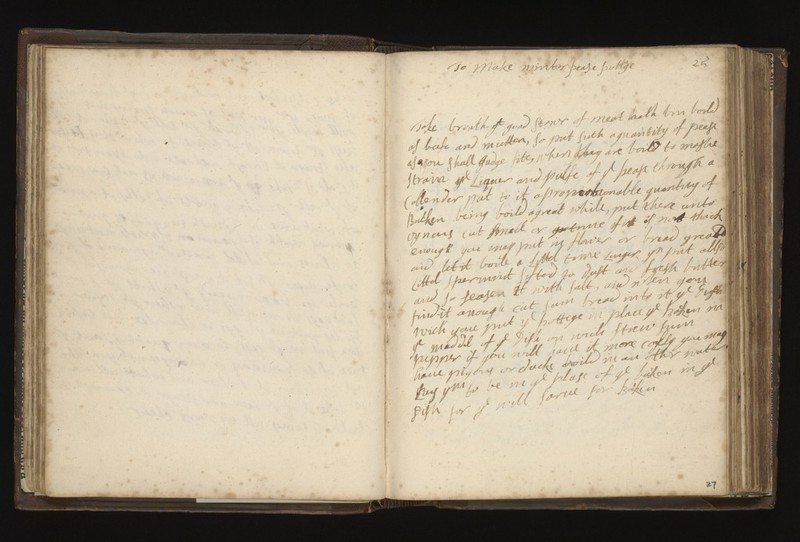 To Make winter pease pottge
Take broath yt good store of meat hath bin boild
as beefe and mutton, so put such a quantity of pease
as you shall Judge fite, when they are boild to mashe
Strain ye Liquer and pulpe of ye pease through a
Collender put to it a quantity of
Baken being boild a great while, put there unto
oynons cut small or if not thick
enough you may put in flower or bread
and let it boile a littel time Longer, yn put
littel spermint to Dust and fresh butter
and so seasen it with salt, and when you
find it anough cut sum bread into it ye Dish
wich you put ye pottege in place ye baken in
ye maddil of ye Dish on wich strew sum
pepper if you will have it more costly you may
have pigons or ducke boild in an other water
to be in ye plase of ye baken in ye
Dish for yt will sarue for baken
27